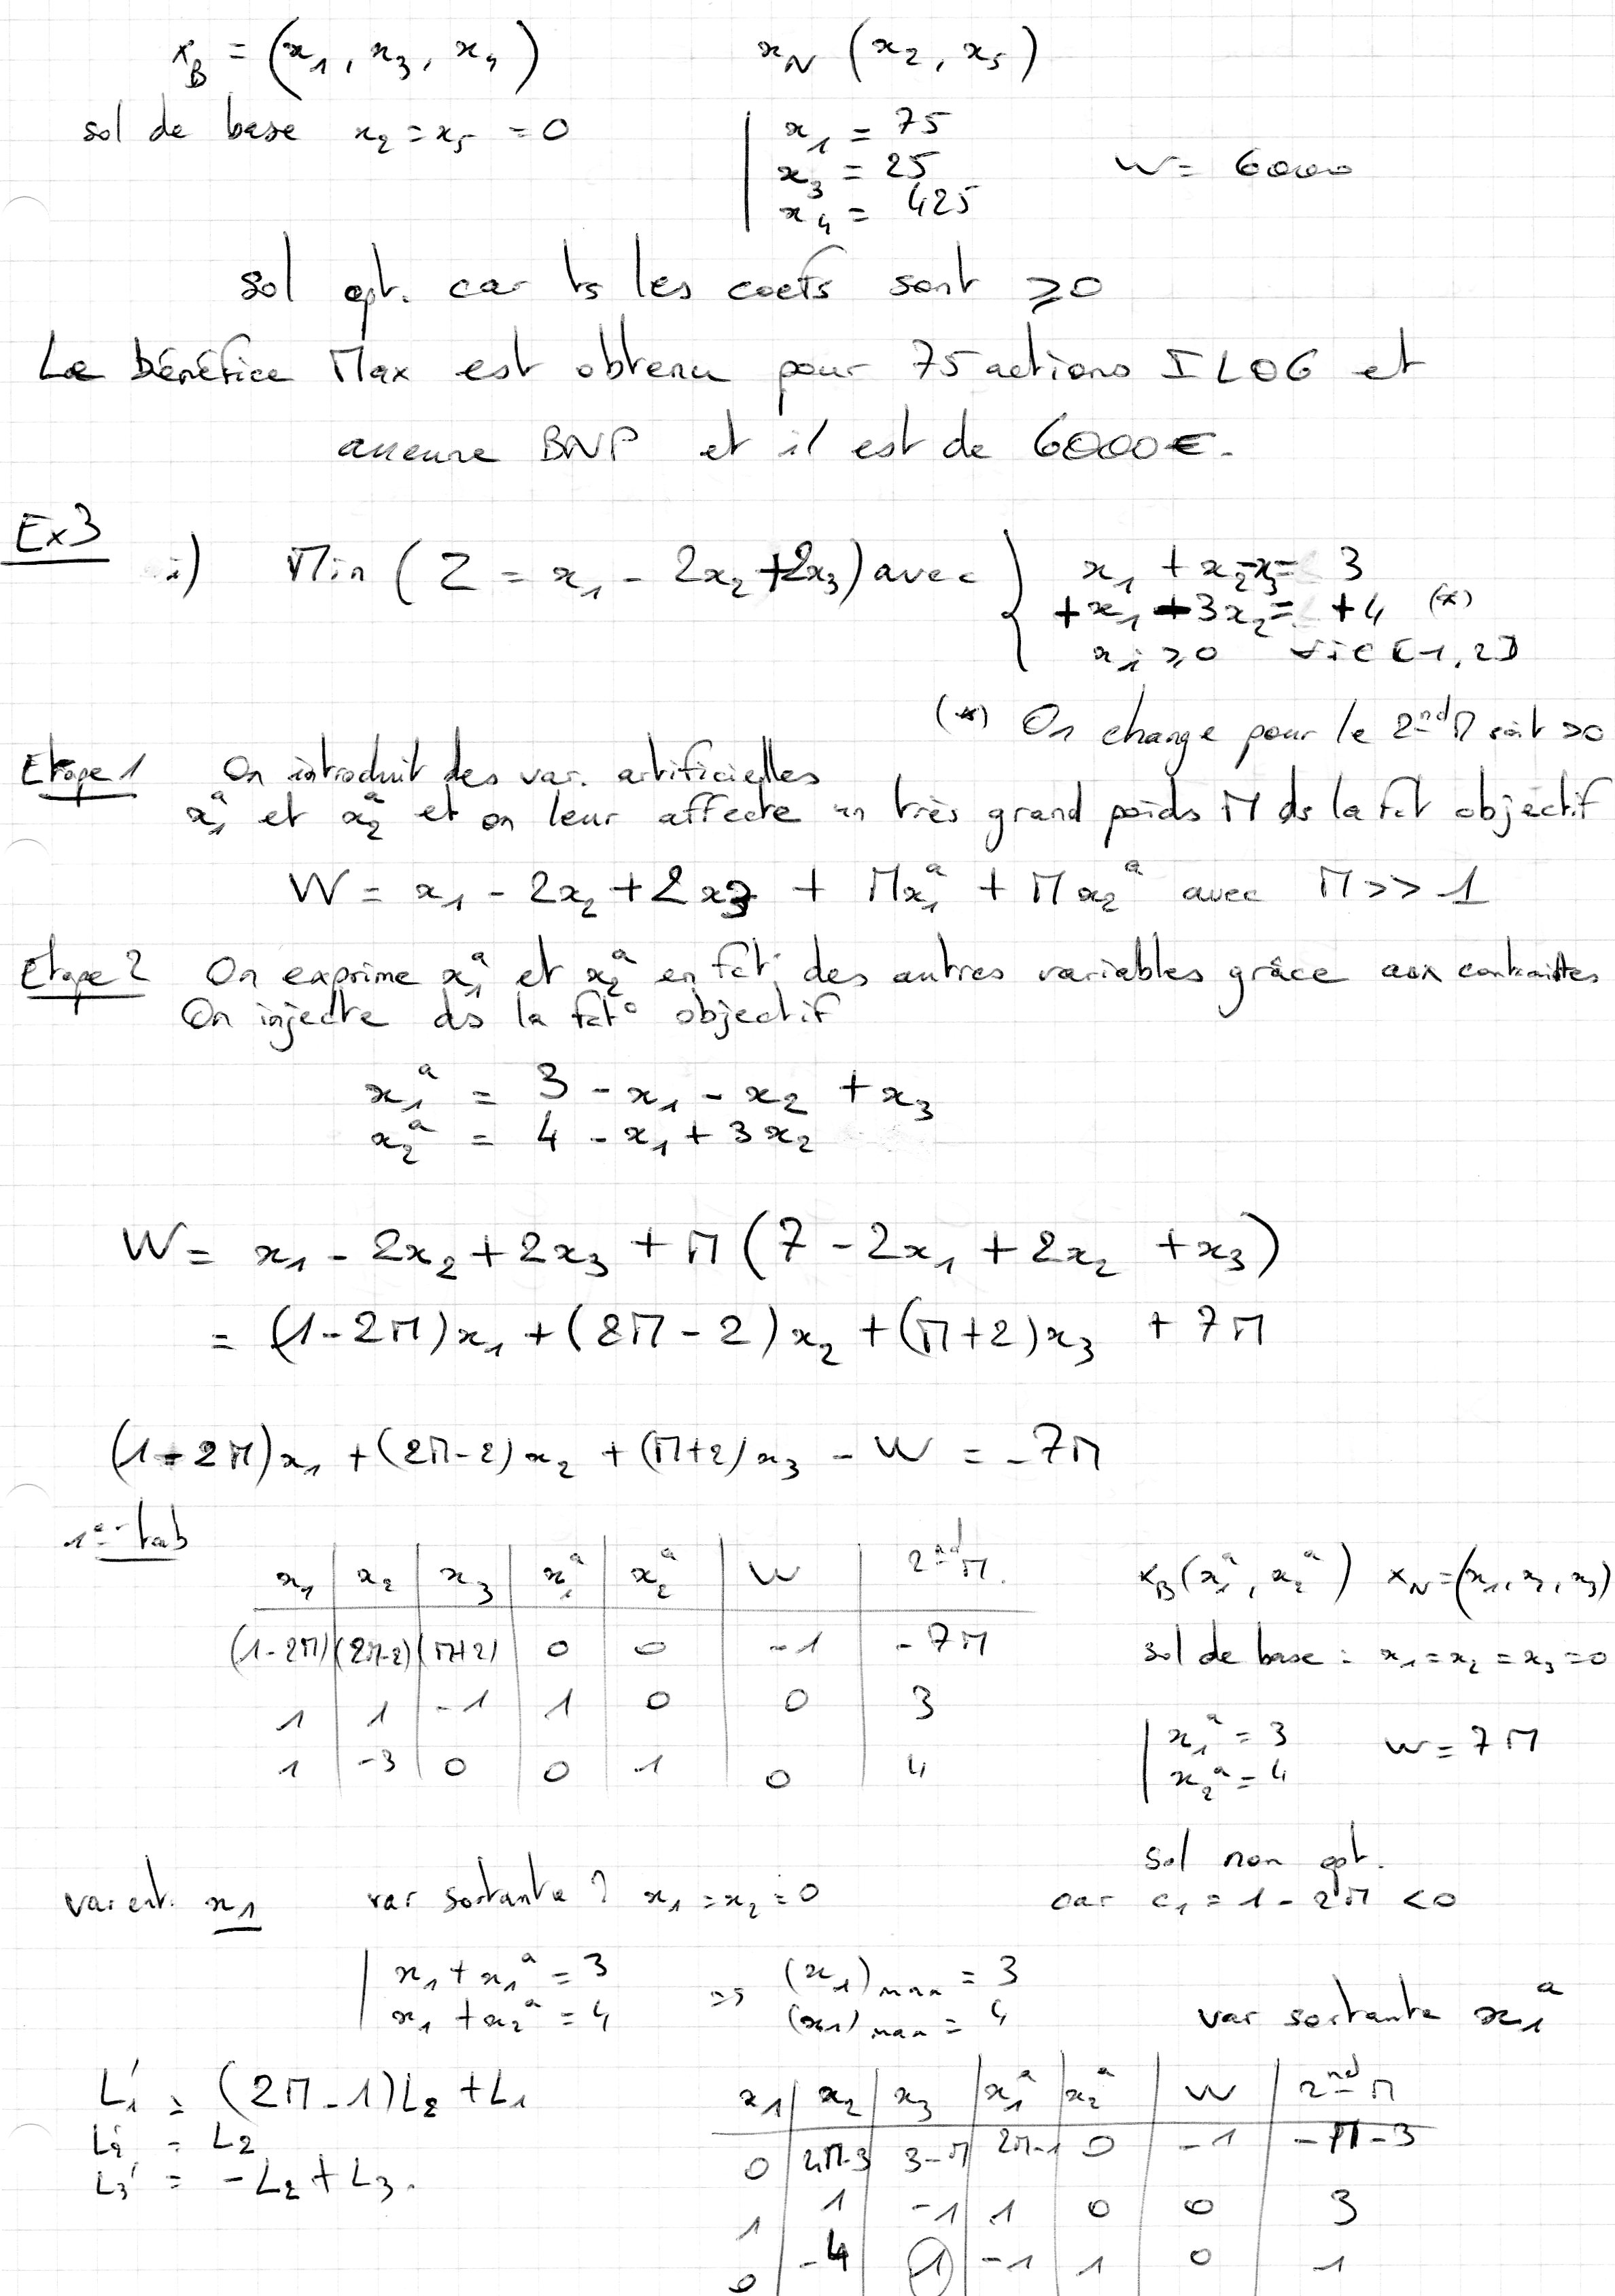 x_B = (x₁, x₃, x₄) x_N (x₂, x₅)
sol de base x₂ = x₅ = 0 | x₁ = 75
x₃ = 25 W = 6000
x₄ = 425
sol opt. car ts les coefs sont ⩾0
Le bénéfice Max est obtenu pour 75 actions ILOG et
aucune BNP et il est de 6000€.
Ex3 i) Min (Z = x₁ - 2x₂ + 2x₃) avec { x₁ + x₂ - x₃ = 3
+x₁ + 3x₂ = +4 (*)
xᵢ ⩾ 0 ∀i ∈ [1,2]
(*) On change pour le 2nd M soit >0
Etape 1 On introduit des var. artificielles
x₁ᵃ et x₂ᵃ et on leur affecte un très grand poids M ds la fct objectif
W = x₁ - 2x₂ + 2x₃ + Mx₁ᵃ + Mx₂ᵃ avec M >> 1
Etape 2 On exprime x₁ᵃ et x₂ᵃ en fct° des autres variables grâce aux contraintes
On injecte ds la fct° objectif
x₁ᵃ = 3 - x₁ - x₂ + x₃
x₂ᵃ = 4 - x₁ + 3x₂
W = x₁ - 2x₂ + 2x₃ + M(7 - 2x₁ + 2x₂ + x₃)
= (1-2M)x₁ + (2M-2)x₂ + (M+2)x₃ + 7M
(1-2M)x₁ + (2M-2)x₂ + (M+2)x₃ - W = -7M
1er tab
x₁ | x₂ | x₃ | x₁ᵃ | x₂ᵃ | W | 2nd M. x_B(x₁ᵃ, x₂ᵃ) x_N = (x₁, x₂, x₃)
(1-2M) | (2M-2) | (M+2) | 0 | 0 | -1 | -7M sol de base : x₁ = x₂ = x₃ = 0
1 | 1 | -1 | 1 | 0 | 0 | 3
| x₁ᵃ = 3 W = 7M
1 | -3 | 0 | 0 | 1 | 0 | 4
x₂ᵃ = 4
sol non opt.
car c₁ = 1 - 2M < 0
var ent. x₁ var sortante ? x₁ = x₂ = 0
| x₁ + x₁ᵃ = 3 => (x₁)max = 3
x₁ + x₂ᵃ = 4 (x₁)max = 4 var sortante x₁ᵃ
L₁' = (2M-1)L₂ + L₁
L₂' = L₂
L₃' = -L₂ + L₃.
x₁ | x₂ | x₃ | x₁ᵃ | x₂ᵃ | W | 2nd M
0 | 4M-3 | 3-M | 2M-1 | 0 | -1 | -M-3
1 | 1 | -1 | 1 | 0 | 0 | 3
0 | -4 | 1 | -1 | 1 | 0 | 1